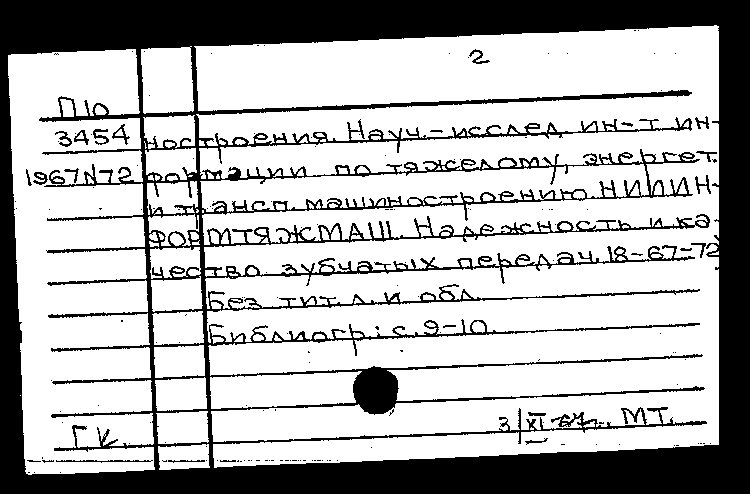 2
П10
3454 ностроения. Науч.-исслед. ин-т ин-
1967N72 формации по тяжелому, энергет.
и трансп. машиностроению. НИИИН-
ФОРМТЯЖМАШ. Надежность и ка-
чество зубчатых передач. 18-67-72
Без тит. л. и обл.
Библиогр.: с. 9-10.
Г К. 3/XI МТ.